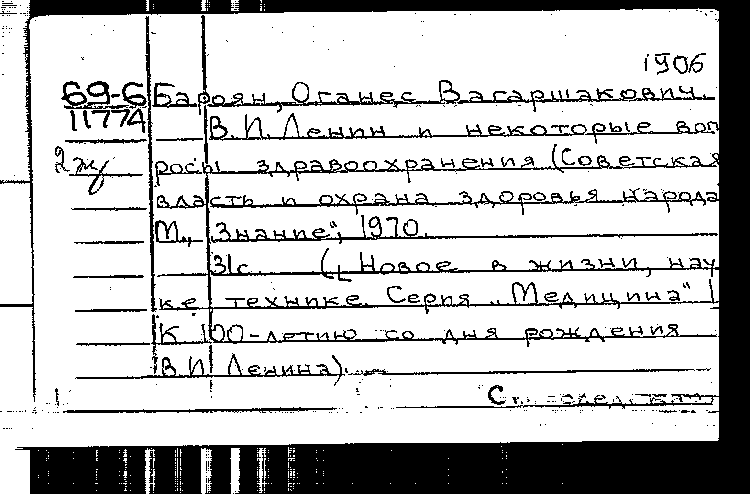 1906
69-6 Бароян, Оганес Вагаршакович.
11774 В.И. Ленин и некоторые воп
2 жу росы здравоохранения (Советская
власть и охрана здоровья народа
М., "Знание", 1970.
31с. (Новое в жизни, нау
ке технике. Серия „Медицина" 1
К 100-летию со дня рождения
В.И. Ленина).
См. след.